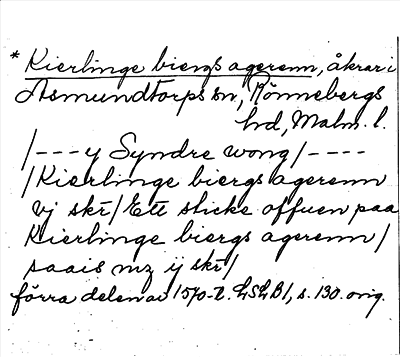 * Kierlinge biergs agerenn, åkrar i
Asmundtorps sn, Rönnebergs
hd, Malm. l.
/---y Syndre wong/----
/Kierlinge biergs agerenn
vj skr/ Ett sticke offuen paa
Kierlinge biergs agerenn/
saais mz ij skr/
förra delen av 1570-t. LSLB1, s. 130. orig.